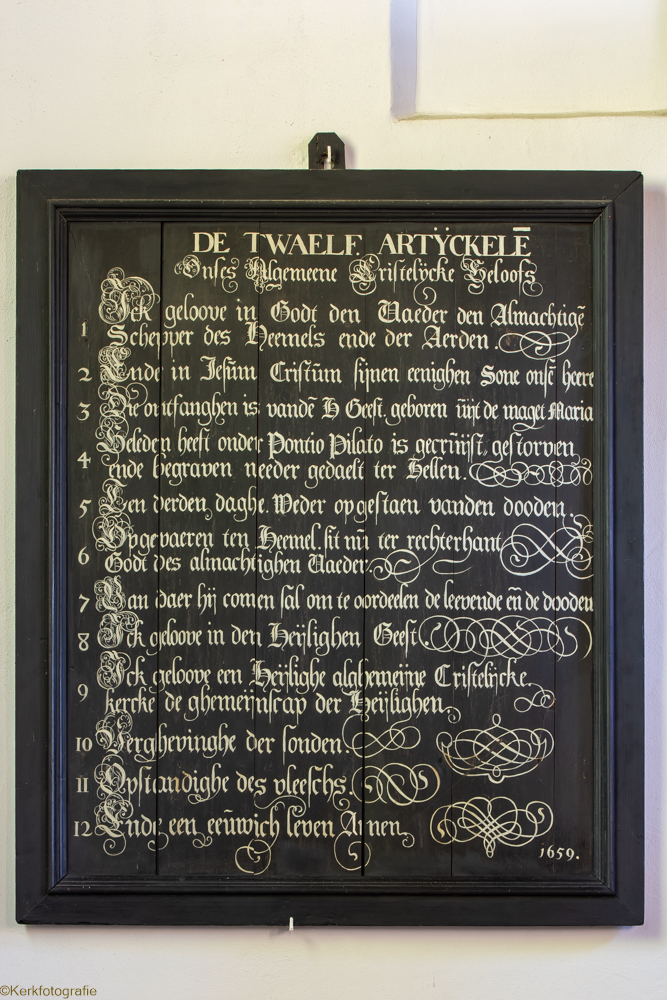 DE TWAELF ARTŸCKELĒ
Onses Algemeene Cristelÿcke Geloofs
1 Ick geloove in Godt den Vaeder den Almachtigē
Schepper des Heemels ende der Aerden.
2 Ende in Jesūm Cristūm sijnen eenighen Sone onsē heere
3 Die ontfanghen is vandē H Geest. geboren ūijt de maget Maria
4 Geleden heeft onder Pontio Pilato is gecrūijst, gestorven
ende begraven needer gedaelt ter Hellen.
5 Ten derden daghe. Weder opgestaen vanden dooden.
6 Opgevaeren ten Heemel. sit nū ter rechterhant
Godt des almachtighen Vaeder.
7 Van daer hij comen sal om te oordeelen de leevende eñ de dooden
8 Ick geloove in den Heijlighen Geest.
9 Ick geloove een Heijlighe alghemeijne Cristelijcke.
kercke de ghemeijnscap der Heijlighen.
10 Verghevinghe der sonden.
11 Opstandighe des vleeschs.
12 Ende een eeūwich leven Amen.
1659.
©Kerkfotografie